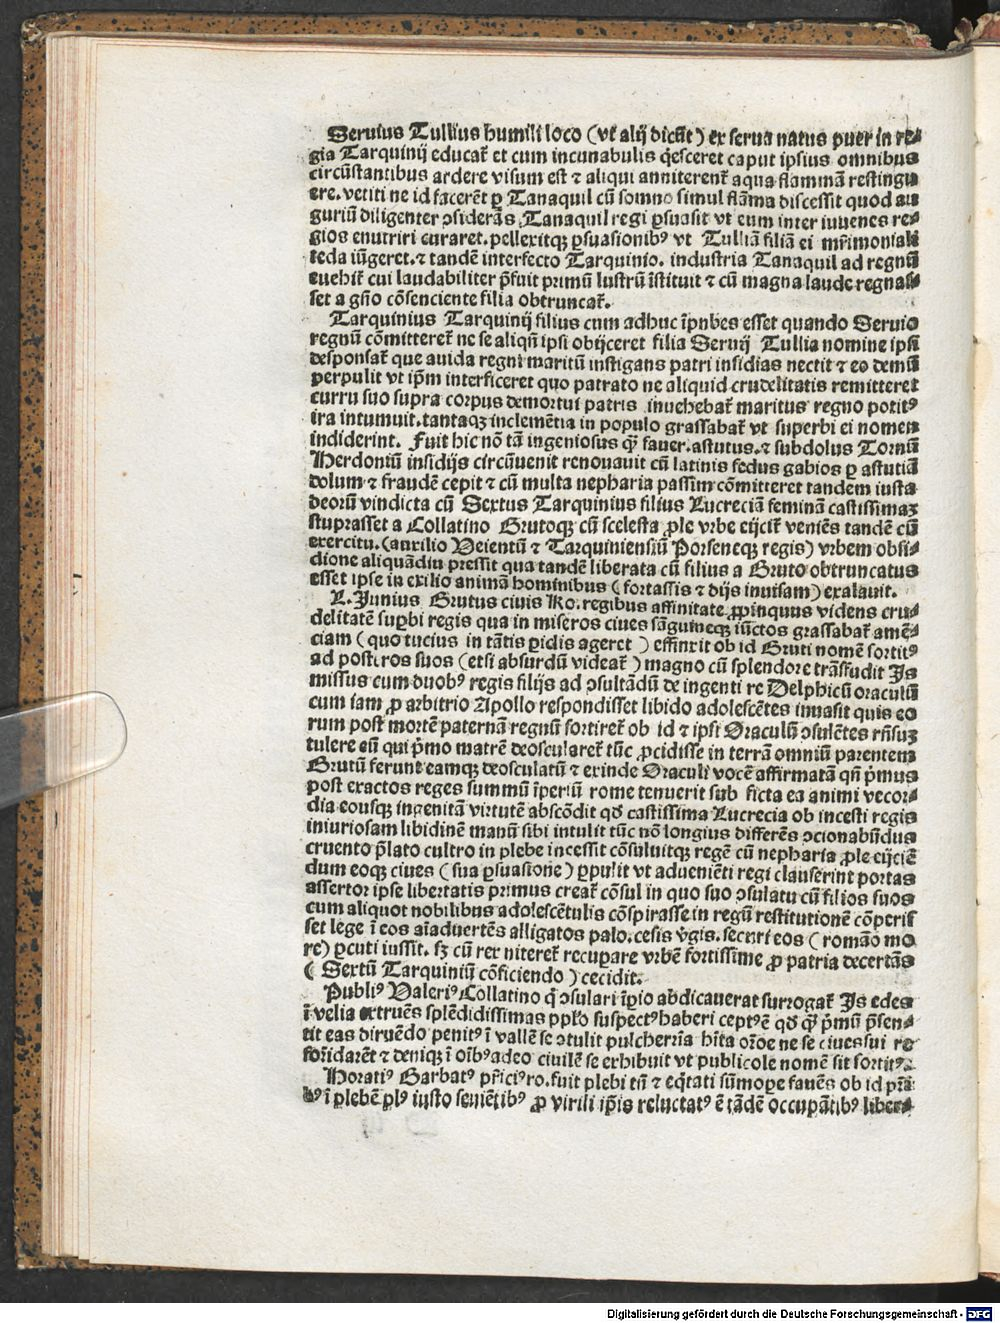 Seruius Tullius humili loco (vt alij dicũt) ex serua natus puer in re⸗
gia Tarquinij educat̃ et cum incunabulis q̇esceret caput ipsius omnibus
circũstantibus ardere visum est ⁊ aliqui anniterent̃ aqua flammam restingu
ere. vetiti ne id facerẽt ꝑ Tanaquil cũ somno simul flãma discessit quod au
guriũ diligenter ↄsiderãs Tanaquil regi ꝑsuasit vt eum inter iuuenes re⸗
gios enutriri curaret. pellexitqꝫ ꝑsuasionibꝰ vt Tulliã filiã ei mr̃imoniali
teda iũgeret. ⁊ tandẽ interfecto Tarquinio. industria Tanaquil ad regnũ
euehit̃ cui laudabiliter p̃fuit primũ lustrũ ĩstituit ⁊ cũ magna laude regnas⸗
set a gño cõsenciente filia obtruncat̃.
Tarquinius Tarquinij filius cum adhuc ĩpubes esset quando Seruio
regnũ cõmitteret̃ ne se aliqñ ipsi obijceret filia Seruij Tullia nomine ipsi
desponsat̃ que auida regni maritũ instigans patri insidias nectit ⁊ eo demũ
perpulit vt ip̃m interficeret quo patrato ne aliquid crudelitatis remitteret
curru suo supra corpus demortui patris inuehebat̃ maritus regno potitꝰ
ira intumuit. tantaqꝫ inclemẽtia in populo grassabat̃ vt superbi ei nomen
indiderint. Fuit hic nõ tã ingeniosus q̃ʒ fauer. astutus. ⁊ subdolus Tornũ
Herdoniũ insidijs circũuenit renouauit cũ latinis fedus gabios ꝑ astutiã
dolum ⁊ fraudẽ cepit ⁊ cũ multa nepharia passim cõmitteret tandem iusta
deorũ vindicta cũ Sextus Tarquinius filius Lucreciã feminam castissimaꝫ
stuprasset a Collatino Brutoqꝫ cũ scelesta ꝓle vrbe eijcit̃ veniẽs tandẽ cũ
exercitu. (auxilio Veientũ ⁊ Tarquiniensiũ Porseneqꝫ regis) vrbem obsi⸗
dione aliquãdiu pressit qua tandẽ liberata cũ filius a Bruto obtruncatus
esset ipse in exilio animã hominibus (fortassis ⁊ dijs inuisam) exalauit.
L. Junius Brutus ciuis Ro. regibus affinitate ꝓpinquus videns cru⸗
delitatẽ suꝑbi regis qua in miseros ciues sãguineqꝫ iũctos grassabat̃ amẽ⸗
ciam (quo tucius in tãtis ꝑiclis ageret) effinxit ob id Bruti nomẽ sortitꝰ
ad posteros suos (etsi absurdũ videat̃) magno cũ splendore trãsfudit Is
missus cum duobꝰ regis filijs ad ↄsultãdũ de ingenti re Delphicũ oraculũ
cum iam ꝓ arbitrio Apollo respondisset libido adolescẽtes inuasit quis eo
rum post mortẽ paternam regnũ sortiret̃ ob id ⁊ ipsi Oraculũ ↄsulẽtes rñsuꝫ
tulere eũ qui p̃mo matrẽ deoscularet̃ tũc ꝓcidisse in terrã omniũ parentem
Brutũ ferunt eamqꝫ deosculatũ ⁊ exinde Oraculi vocẽ affirmatã qñ p̃mus
post exactos reges summũ ĩperiũ rome tenuerit sub ficta ea animi vecor⸗
dia eousqꝫ ingenitã virtutẽ abscõdit qđ castissima Lucrecia ob incesti regis
iniuriosam libidinẽ manũ sibi intulit tũc nõ longius differẽs ↄcionabũdus
cruento p̃lato cultro in plebe incessit cõsuluitqꝫ regẽ cũ nepharia ꝓle eijciẽ
dum eoqꝫ ciues (sua ꝑsuasione) ꝑpulit vt adueniẽti regi clauserint portas
assertor ipse libertatis primus creat̃ cõsul in quo suo ↄsulatu cũ filios suos
cum aliquot nobilibus adolescẽtulis cõspirasse in regũ restitutionẽ cõperis
set lege ĩ eos aĩaduertẽs alligatos palo. cesis v̾gis. securi eos (romão mo
re) ꝑcuti iussit. sꝫ cũ rex niteret̃ recuꝑare vrbẽ fortissime ꝓ patria decertãs
(Sextũ Tarquiniũ cõficiendo) cecidit.
Publiꝰ Valeriꝰ Collatino q̇ ↄsulari ĩpio abdicauerat surrogat̃ Is edes
ĩ velia extruẽs splẽdidissimas pplo suspectꝰ haberi ceptꝰ ẽ qđ q̃ʒ p̃mũ p̃sen⸗
tit eas diruẽdo penitꝰ ĩ vallẽ se ↄtulit pulcherrĩa hĩta or̃oe ne se ciues sui re
formĩdarẽt ⁊ deniqꝫ ĩ oĩbꝰ adeo ciuilẽ se exhibuit vt publicole nomẽ sit sortitꝰ.
Horatiꝰ Barbatꝰ pr̃iciꝰ ro. fuit plebi tñ ⁊ eq̃tati sũmoꝑe fauẽs ob id pr̃i
bꝰ ĩ plebẽ plꝰ iusto seuiẽtibꝰ ꝓ virili ip̃is reluctatꝰ ẽ tãdẽ occupãtibꝰ liber⸗
Digitalisierung gefördert durch die Deutsche Forschungsgemeinschaft - DFG